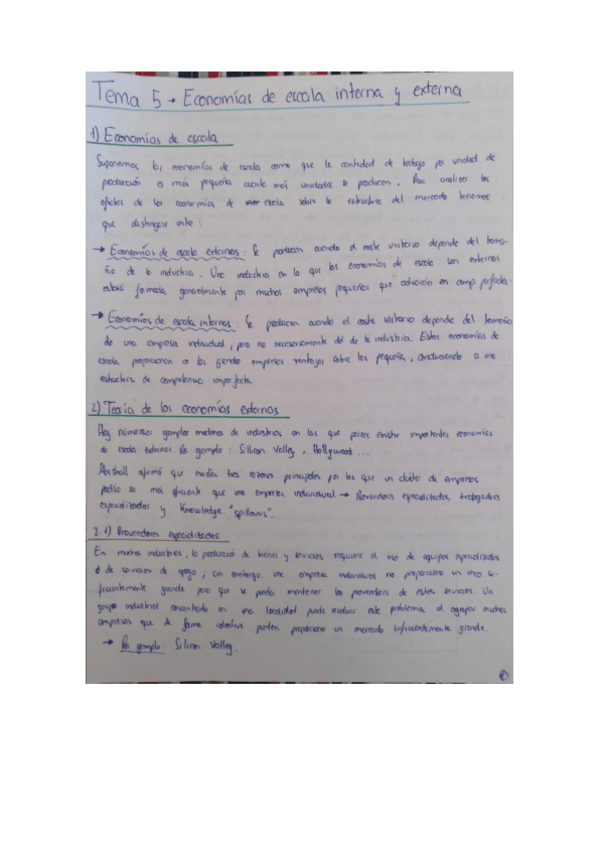 Tema 5 → Economías de escala interna y externa
1) Economías de escala
Suponemos las economías de escala como que la cantidad de trabajo por unidad de
producción es más pequeña cuanto más unidades se producen. Para analizar los
efectos de las economías de escala sobre la estructura del mercado tenemos
que distinguir entre:
→ Economías de escala externas: Se producen cuando el coste unitario depende del tama-
ño de la industria. Una industria en la que las economías de escala son externas
estará formada generalmente por muchas empresas pequeñas que actúan en comp perfecta.
→ Economías de escala internas: Se producen cuando el coste unitario depende del tamaño
de una empresa individual, pero no necesariamente del de la industria. Estas economías de
escala proporcionan a las grandes empresas ventajas sobre las pequeñas, conduciendo a una
estructura de competencia imperfecta.
2) Teoría de las economías externas
Hay numerosos ejemplos modernos de industrias en las que parecen existir importantes economías
de escala externas. Por ejemplo: Silicon Valley, Hollywood...
Marshall afirmó que existen tres razones principales por las que un clúster de empresas
podía ser más eficiente que una empresa individual → Proveedores especializados, trabajadores
especializados y Knowledge "spillovers".
2.1) Proveedores especializados
En muchas industrias, la producción de bienes y servicios requiere el uso de equipos especializados
o de servicios de apoyo; sin embargo, una empresa individual no proporciona un mercado su-
ficientemente grande para que se puedan mantener los proveedores de estos servicios. Un
grupo industrial concentrado en una localidad puede resolver este problema al agrupar muchas
empresas que de forma colectiva pueden proporcionar un mercado suficientemente grande.
→ Por ejemplo: Silicon Valley.